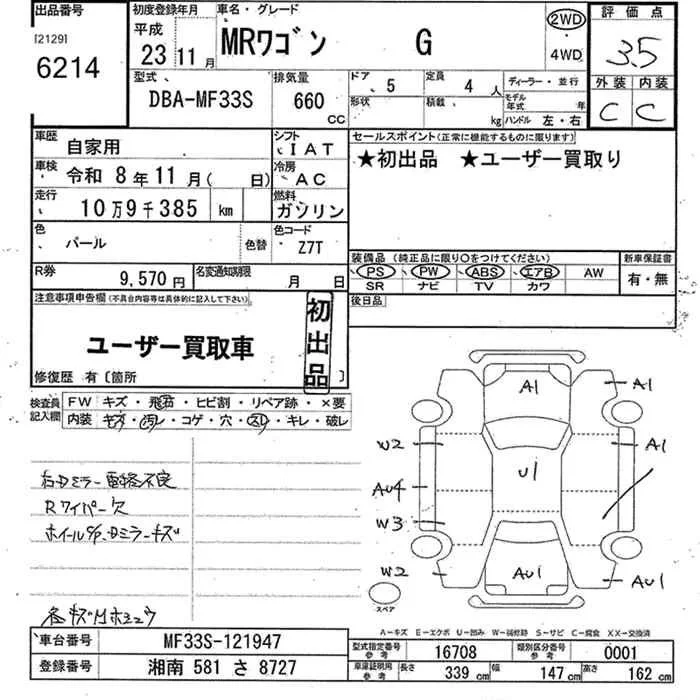 出品番号
[2129]
6214
初度登録年月
平成
23年11月
車名・グレード
MRワゴン G
2WD
4WD
評価点
3.5
外装 内装
C C
型式
DBA-MF33S
排気量
660 CC
ドア 5
定員 4 人
ディーラー・並行
形状
積載 kg
モデル年式 年
ハンドル 左・右
車歴 自家用
シフト IAT
車検 令和 8年11月( 日)
冷房 AC
走行 10万9千385 km
燃料 ガソリン
色 パール 色替
色コード Z7T
R券 9,570円
名変通知期限 月 日
セールスポイント(正常に機能するものに限ります)
★初出品 ★ユーザー買取り
装備品 (純正品に限り○をつけてください)
PS PW ABS エアB AW
SR ナビ TV カワ
新車保証書
有・無
後日品
注意事項申告欄(不具合内容等は具体的に記入して下さい。)
ユーザー買取車
初出品
修復歴 有〔箇所 〕
検査員記入欄
FW キズ・飛石・ヒビ割・リペア跡・×要
内装 キズ・汚レ・コゲ・穴・スレ・キレ・破レ
右Dミラー電格不良
Rワイパー欠
ホイールC/P、Dミラーキズ
A1
A1
W2
A1
U1
AU4
W3
W2
AU1
AU1
スペア
A-キズ E-エクボ U-凹み W-補修跡 S-サビ C-腐食 XX-交換済
車台番号 MF33S-121947
登録番号 湘南 581 さ 8727
型式指定番号 参考 16708
類別区分番号 参考 0001
車庫証明用 参考 長さ 339 cm 幅 147 cm 高さ 162 cm